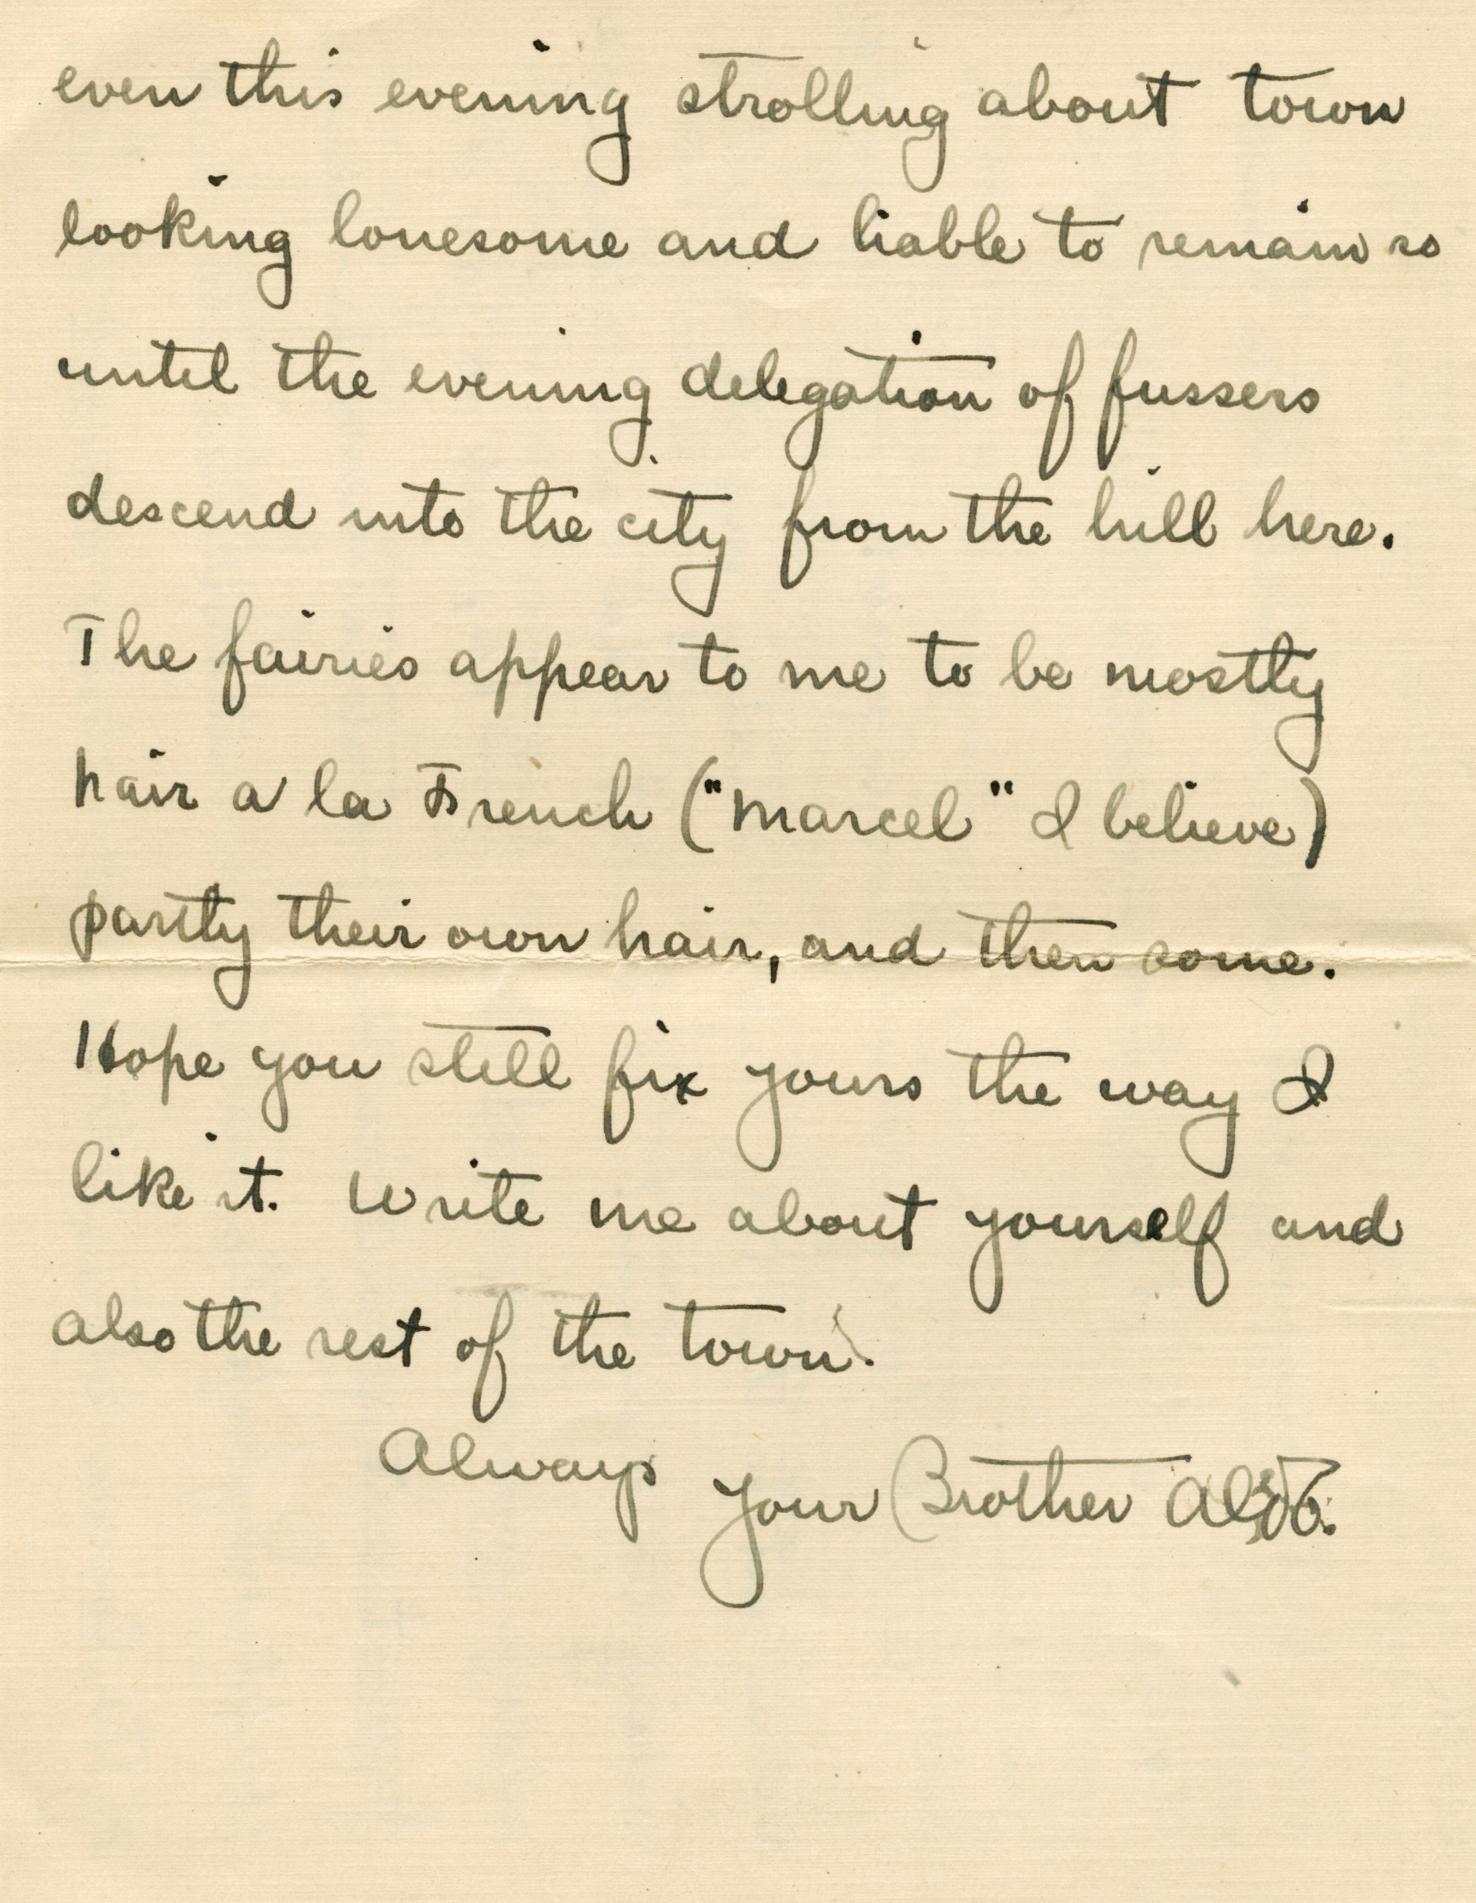 even this evening strolling about town
looking lonesome and liable to remain so
until the evening delegation of fussers
descend into the city from the hill here.
The fairies appear to me to be mostly
hair a la French ("Marcel" I believe)
partly their own hair, and then some.
Hope you still fix yours the way I
like it. Write me about yourself and
also the rest of the town.
Always your Brother